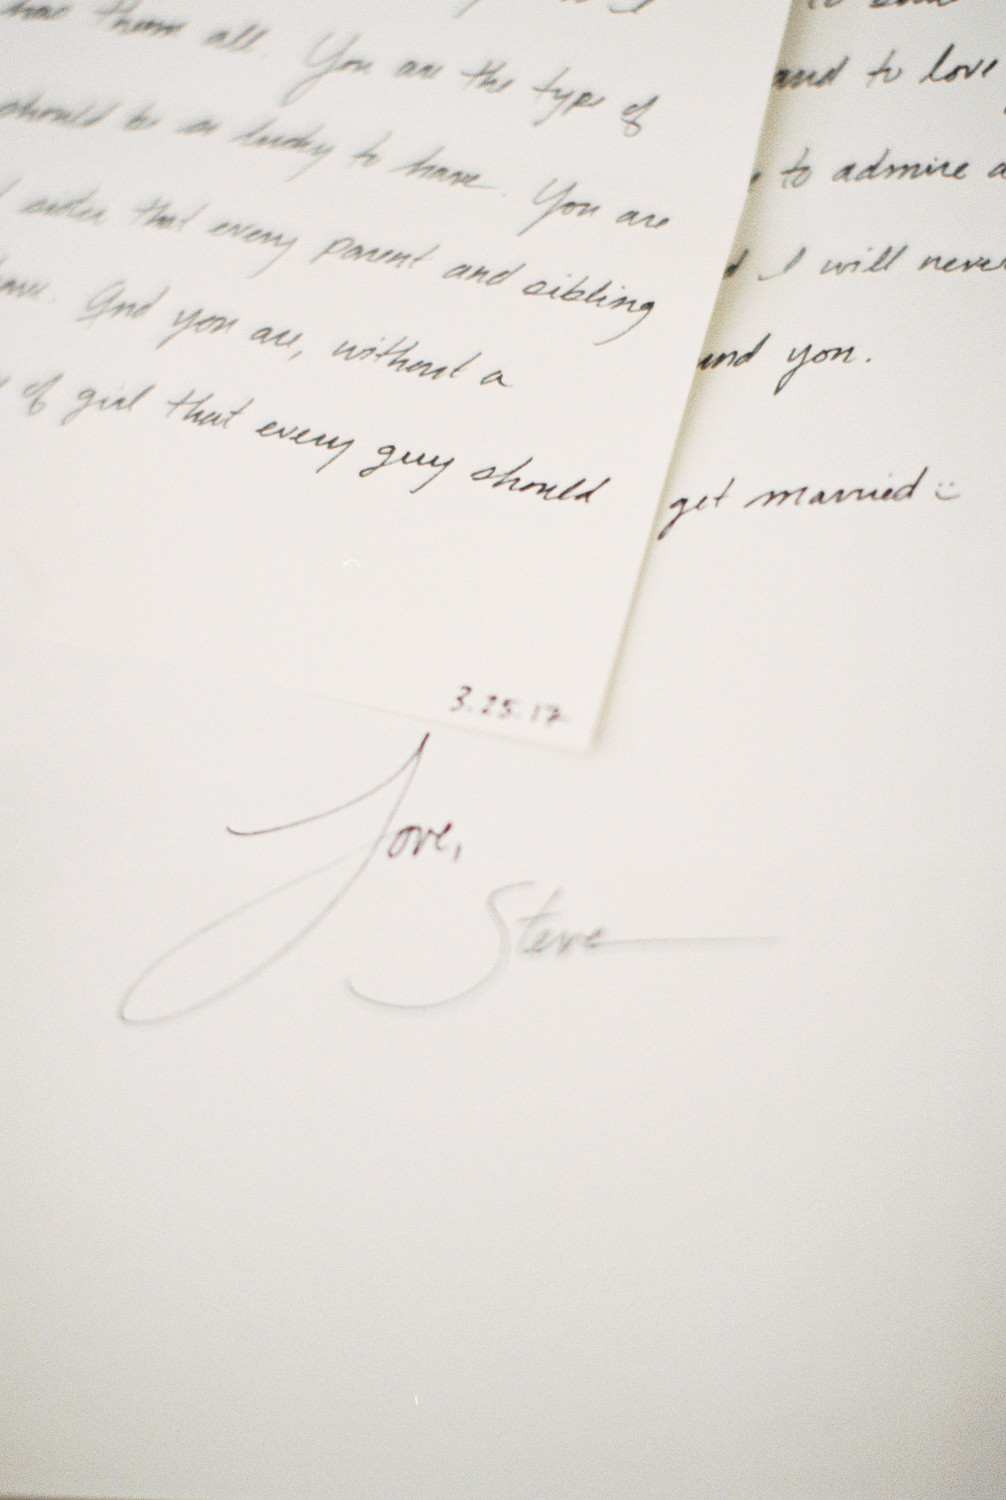 them all. You are the type of
should be so lucky to have. You are
sister that every parent and sibling
have. And you are, without a
of girl that every guy should
3.25.17
and to love
to admire a
I will never
and you.
get married :)
Love,
Steve